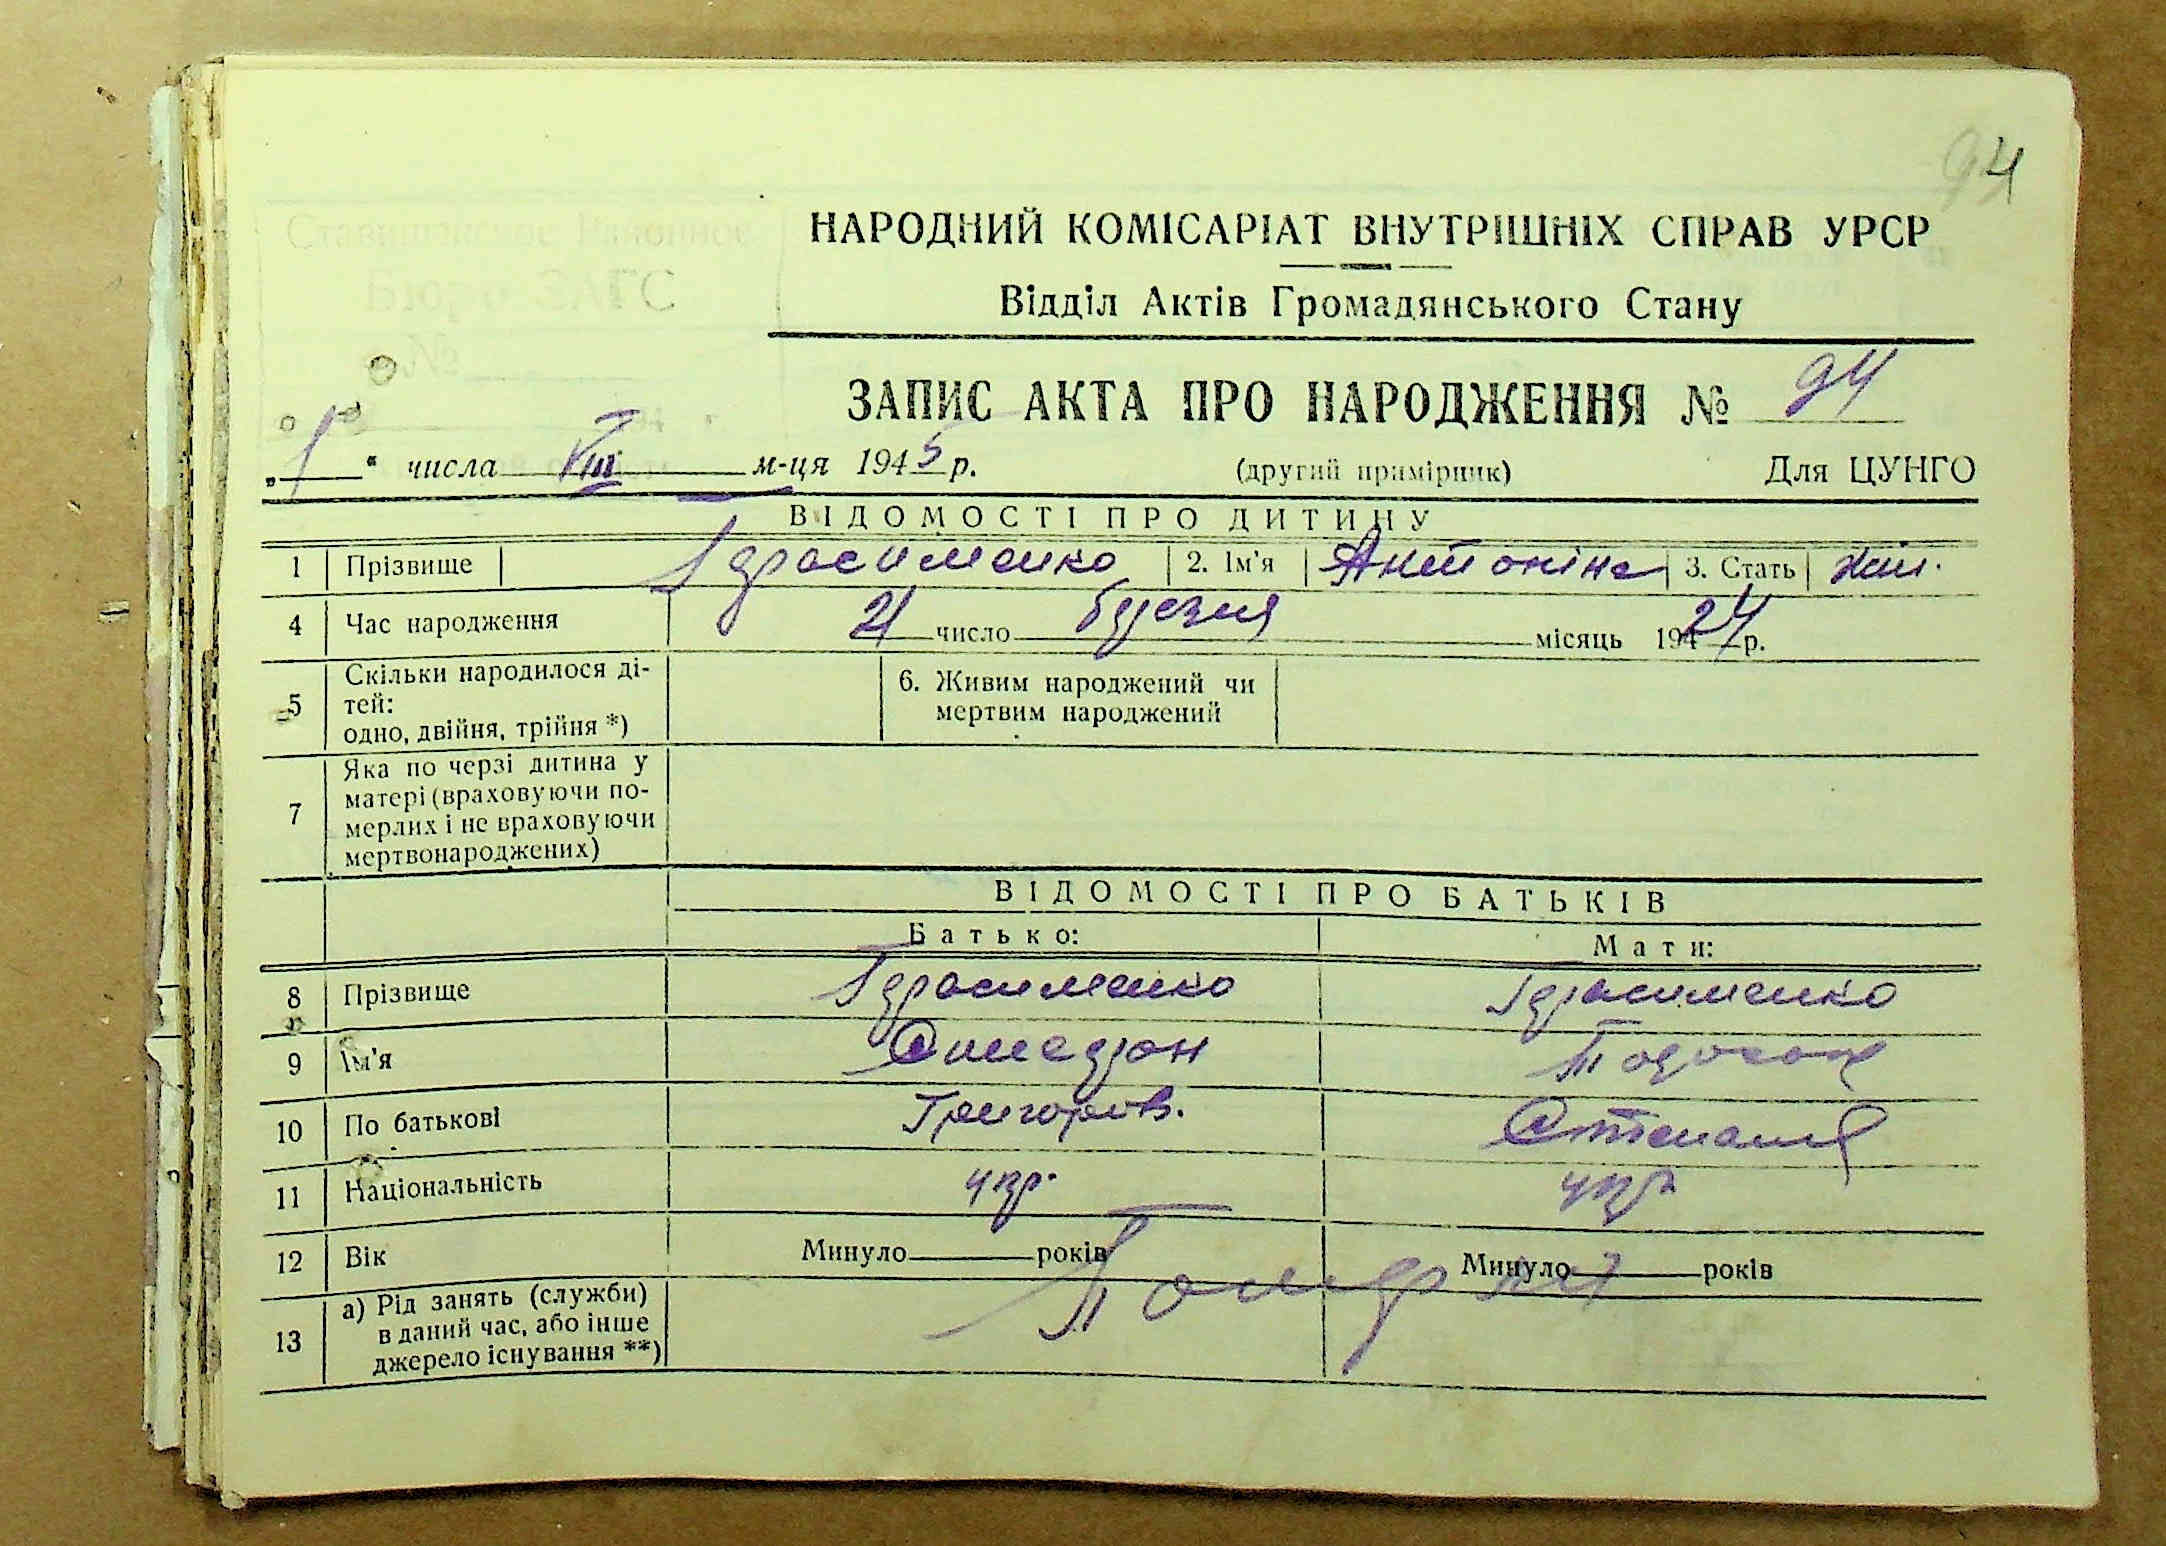 94
НАРОДНИЙ КОМІСАРІАТ ВНУТРІШНІХ СПРАВ УРСР
Відділ Актів Громадянського Стану
ЗАПИС АКТА ПРО НАРОДЖЕННЯ № 94
„1“ числа VIII м-ця 1945 р. (другий примірник) Для ЦУНГО
ВІДОМОСТІ ПРО ДИТИНУ
1 Прізвище Герасименко 2. Ім'я Антоніна 3. Стать жін.
4 Час народження 21 число березня місяць 1924 р.
5 Скільки народилося ді-
тей:
одно, двійня, трійня *)
6. Живим народжений чи
мертвим народжений
7 Яка по черзі дитина у
матері (враховуючи по-
мерлих і не враховуючи
мертвонароджених)
ВІДОМОСТІ ПРО БАТЬКІВ
Батько: Мати:
8 Прізвище Герасименко Герасименко
9 Ім'я
10 По батькові Григоров.
11 Національність укр. укр
12 Вік Минуло років Минуло років
13 а) Рід занять (служби)
в даний час, або інше
джерело існування **)